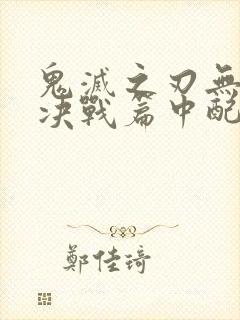 鬼滅之刃無
決戰篇中配
鄭佳琦